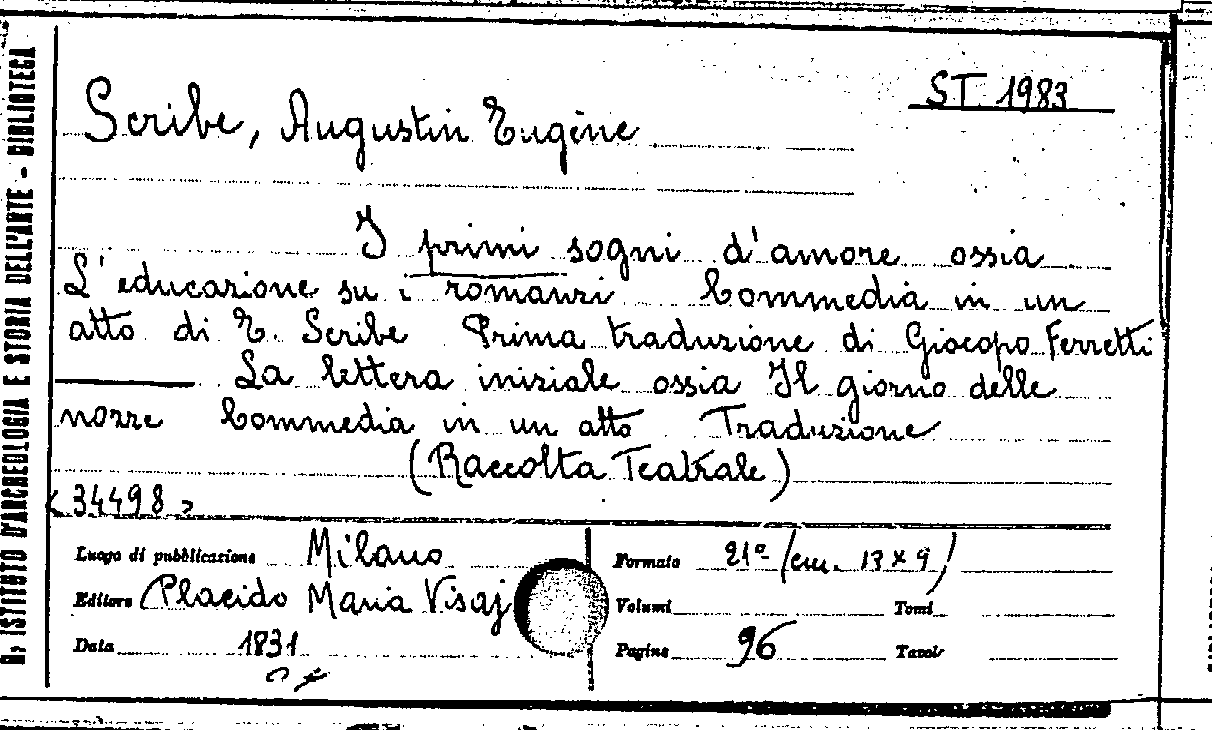 R. ISTITUTO D'ARCHEOLOGIA E STORIA DELL'ARTE - BIBLIOTECA
ST. 1983
Scribe, Augustin Eugène
I primi sogni d'amore ossia
L'educazione su i romanzi Commedia in un
atto di E. Scribe Prima traduzione di Giacopo Ferretti
La lettera iniziale ossia Il giorno delle
nozze Commedia in un atto Traduzione
(Raccolta Teatrale)
<34498>
Luogo di pubblicazione Milano
Editore Placido Maria Visaj
Data 1831
Formato 21º (cm. 13 x 9)
Volumi Tomi
Pagine 96 Tavole